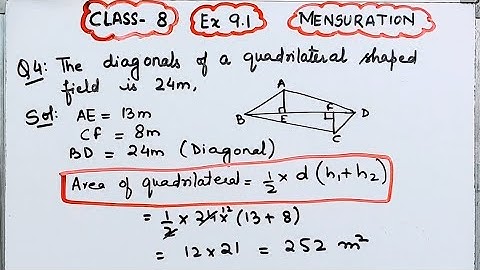 CLASS- 8 Ex 9.1 MENSURATION
Q4: The diagonals of a quadrilateral shaped
field is 24m,
Sol: AE = 13m
CF = 8m
BD = 24m (Diagonal)
A
B E F D
C
Area of quadrilateral = 1/2 × d (h₁+h₂)
= 1/2 × 24 12 × (13 + 8)
= 12×21 = 252 m²